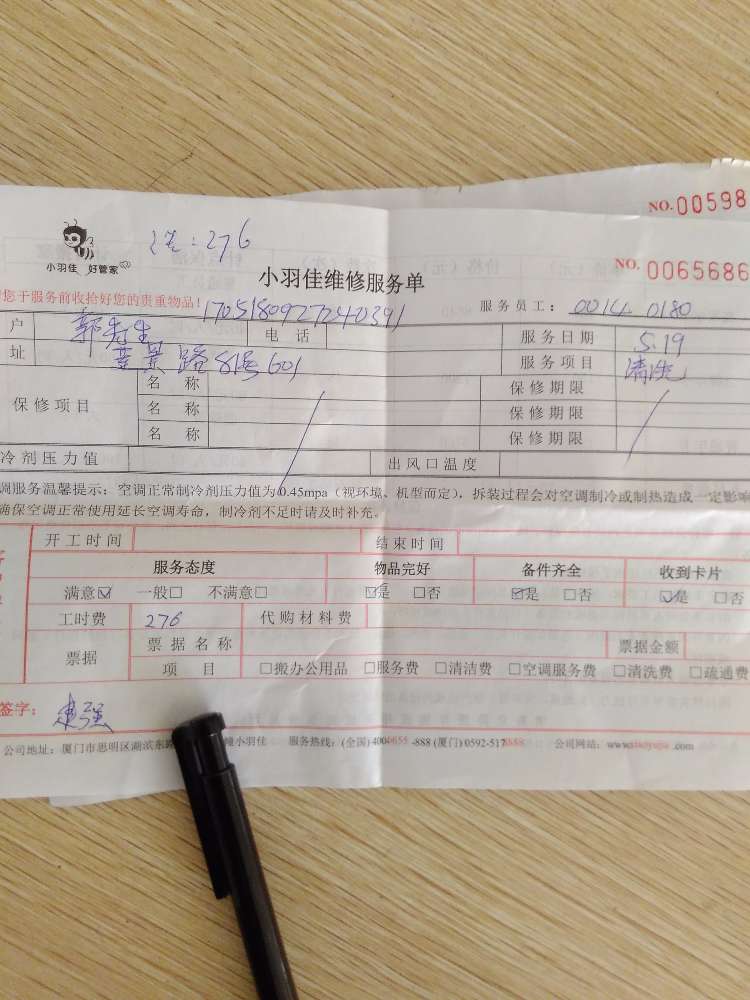 NO.00598
NO. 0065686
小羽佳 好管家
276
小羽佳维修服务单
您于服务前收拾好您的贵重物品!
17051809272402391
服务员工: 0014 0180
户 郭先生 电话 服务日期 5.19
址 景路81号601 服务项目 清洗
保修项目 名称 保修期限
名称 保修期限
名称 保修期限
冷剂压力值 出风口温度
调服务温馨提示: 空调正常制冷剂压力值为0.45mpa (视环境、机型而定), 拆装过程会对空调制冷或制热造成一定影响
确保空调正常使用延长空调寿命, 制冷剂不足时请及时补充。
开工时间 结束时间
服务态度 物品完好 备件齐全 收到卡片
满意☑ 一般□ 不满意□ ☑是 □否 ☑是 □否 ☑是 □否
工时费 276 代购材料费
票据 票据名称 票据金额
项目 □搬办公用品 □服务费 □清洁费 □空调服务费 □清洗费 □疏通费
签字:
公司地址: 厦门市思明区湖滨东路 幢小羽佳 服务热线: (全国) 4000655-888 (厦门) 0592-5178888 公司网站: www.xiaoyujia.com